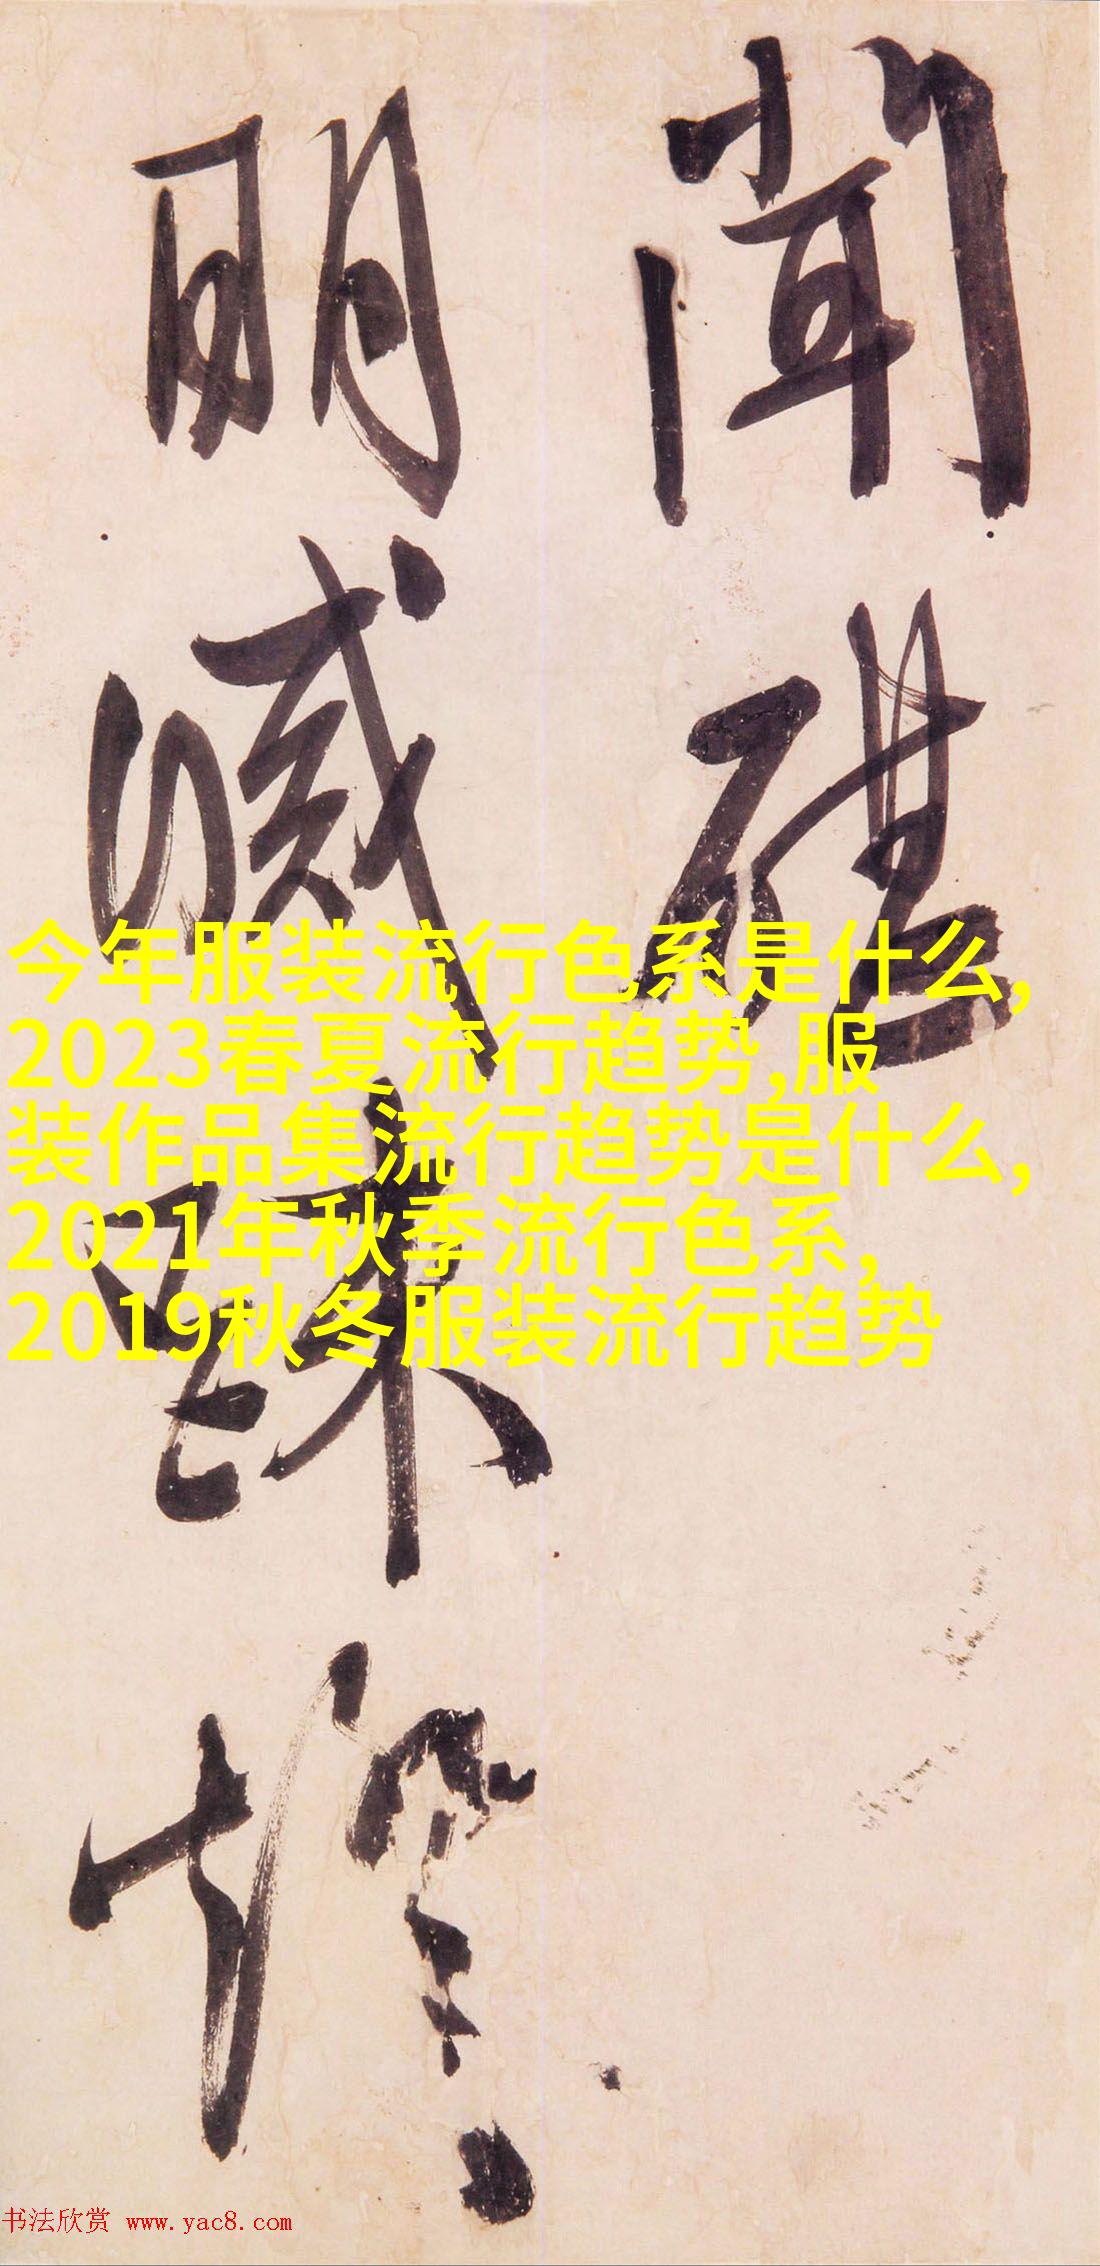 聞碪
明滅踈燈
今年服装流行色系是什么,
2023春夏流行趋势,服
装作品集流行趋势是什么,
2021年秋季流行色系,
2019秋冬服装流行趋势
书法欣赏 www.yac8.com